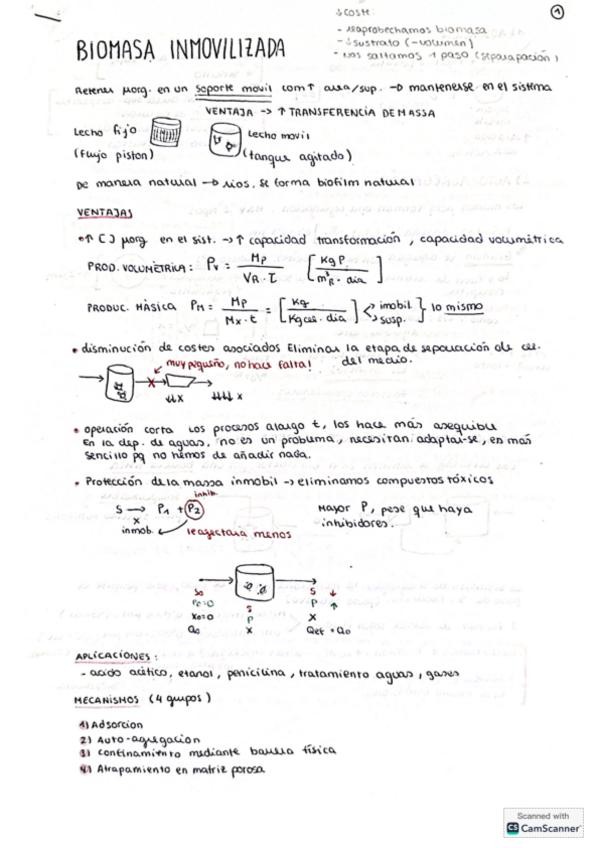 ↓ COSTE:
①
- reaprobechamos biomasa
- ↓ sustrato (-volumen)
- nos saltamos 1 paso (separación)
BIOMASA INMOVILIZADA
Retener μorg. en un soporte movil com ↑ area/sup. → mantenerse en el sistema
VENTAJA → ↑ TRANSFERENCIA DE MASSA
Lecho fijo
(flujo piston)
Lecho movil
(tanque agitado)
De manera natural → rios, se forma biofilm natural
VENTAJAS
• ↑ [ ] μorg. en el sist. → ↑ capacidad transformación, capacidad volumétrica
PROD. VOLUMÉTRICA: Pv = Mp / VR · τ [Kg P / m³R · dia]
PRODUC. MÁSICA PM = Mp / Mx · t = [Kg / Kg cel · dia] imobil. susp. } lo mismo
• disminución de costes asociados Eliminar la etapa de separación de cel. del medio.
muy pequeño, no hace falta!
↓↓X ↓↓↓↓ x
• operación corta Los procesos a largo t, los hace más asequible
En la dep. de aguas, no es un problema, necesitan adaptarse, es más
sencillo pq no hemos de añadir nada.
• Protección de la massa inmobil → eliminamos compuestos tóxicos
inhib.
S → P1 + P2
x
inmob. le afectara menos
Mayor P, pese que haya
inhibidores.
So S ↓
Po=0 S P ↑
Xo=0 P X
Qo X Qef = Qo
APLICACIONES:
- acido acético, etanol, penicilina, tratamiento aguas, gases
MECANISMOS (4 grupos)
1) Adsorcion
2) Auto-agregacion
3) Confinamiento mediante barrera física
4) Atrapamiento en matriz porosa
Scanned with
CS CamScanner